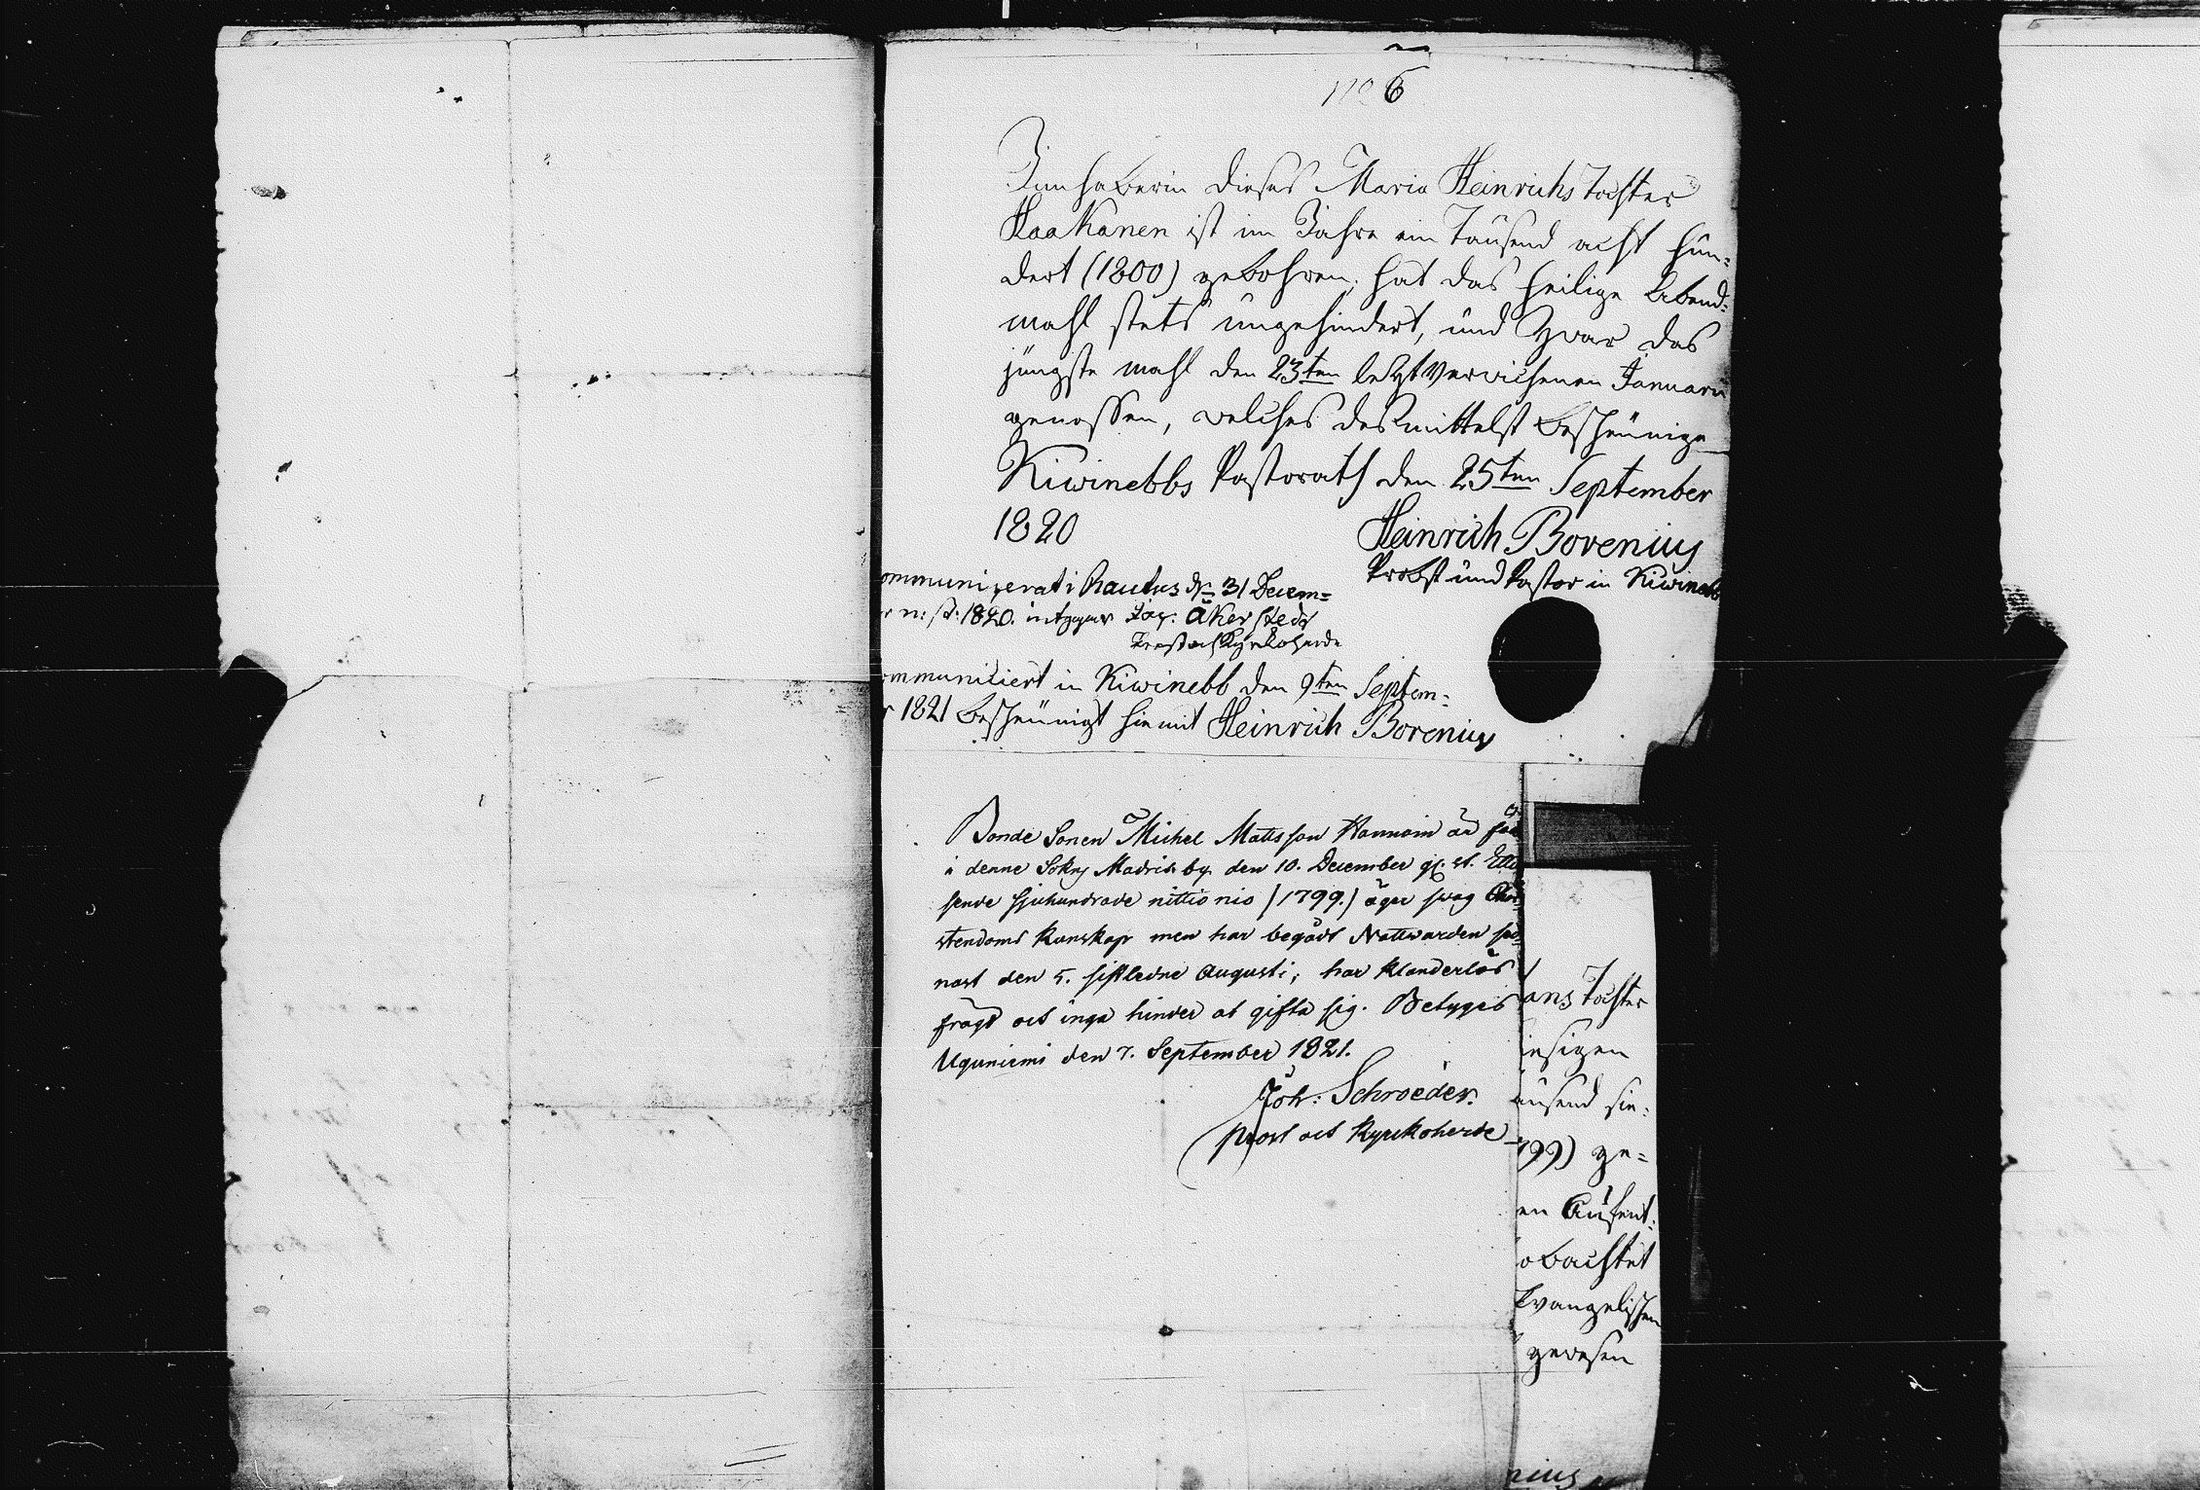 1106
Innhaberin dieses Maria Heinrichs Tochter
Haakanen ist im Jahre ein Tausend acht hun-
dert (1800) gebohren; hat das heilige Abend-
mahl stets ungehindert, und zwar das
jüngste mahl den 23ten letzt verwichenen Januarii
genossen, welches desmittelst bescheinige
Kiwinebbs Pastorath den 25ten September
1820
Heinrich Borenius
Probst und Pastor in Kiwinebb
ommuniserat i Rautus d. 31 Decem=
r n: st: 1820. intygar Jac: Åkerstedt
Prost och Kyrkoherde
ommuniciert in Kiwinebb den 9ten Septem-
r 1821 bescheinigt hiemit Heinrich Borenius
Bonde Sonen Michel Mattsson Hannoin är föd
i denne Sokns Madris by den 10. December gl. st. Ettu
sende sjuhundrade nittio nio (1799.) äger swag Chri-
stendoms kunskap men har begådt Nattwarden sed-
nast den 5. sistledne Augusti; har klanderlös
frägd och inga hinder at gifta sig. Betyges
Uguniemi den 7. September 1821.
Joh: Schroeder.
prost och Kyrckoherde
ans Tochter
iesigen
ausend sie-
799) ge-
en Aufent-
obachtet
Evangelischen
gewesen
nius